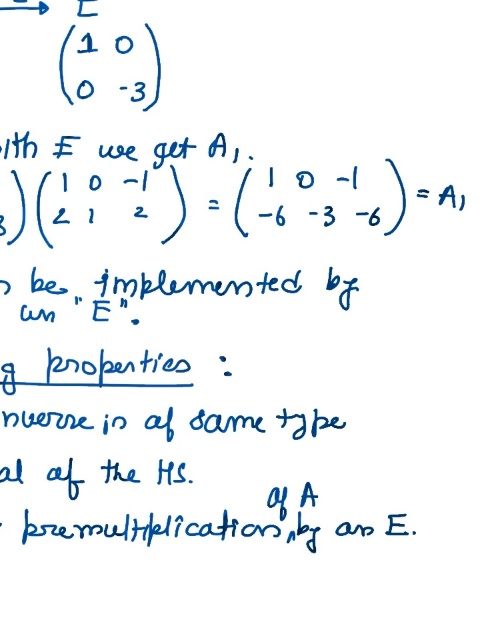 → E
(1 0
0 -3)
ith E we get A₁.
)(1 0 -1
2 1 2) = (1 0 -1
-6 -3 -6) = A₁
be implemented by
an "E".
g properties :
nverse is of same type
al of the
of A
premultiplication by an E.